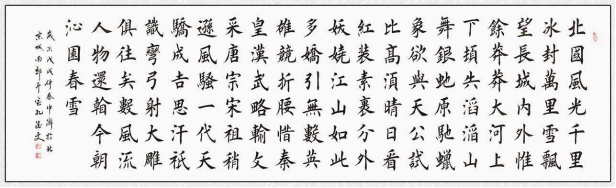 北國風光千里
冰封萬里雪飄
望長城內外惟
餘莽大河上
下頓失滔滔山
舞銀蛇原馳蠟
象欲與天公試
比高須晴日看
紅裝素裹分外
妖嬈江山如此
多嬌引無數英
雄競折腰惜秦
皇漢武略輸文
采唐宗宋祖稍
遜風騷一代天
驕成吉思汗祇
識彎弓射大雕
俱往矣數風流
人物還看今朝
沁園春雪
歲次戊戌仲春中浣於北
京城南郭